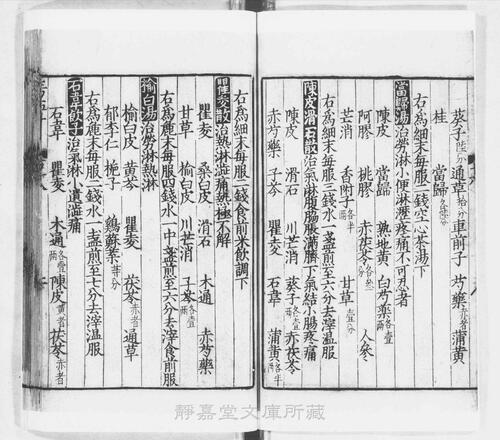 葵子陸分 通草拾分 車前子 芍藥赤 蒲黃
桂 當歸
右為細末每服三錢空心茶湯下
當歸湯治勞淋小便淋瀝疼痛不可忍者
陳皮 當歸 熟地黃 白芍藥 人參
阿膠 桃膠 赤茯苓
芒消 香附子 甘草壹分
右為細末每服三錢水一盞煎至六分去滓溫服
陳皮滑石散治氣淋腹脇脹滿臍下氣結小腸疼痛
陳皮 滑石 川芒消 葵子 赤茯苓
赤芍藥 子芩 瞿麥 石韋 蒲黃各半兩
右為細末每服二錢食前米飲調下
瞿麥散治熱淋澁痛熱極不解
瞿麥 桑白皮 滑石 木通 赤芍藥
甘草 榆白皮 川芒消 子芩
右為麄末每服四錢水一中盞煎至六分去滓食前服
榆白湯治勞淋熱淋
榆白皮 黃芩 瞿麥 茯苓赤者 通草
郁李仁 梔子 鷄蘇葉
右為麄末每服二錢水一盞煎至七分去滓溫服
石韋飲子治氣淋小遺澁痛
石韋 瞿麥 木通各壹兩 陳皮 茯苓赤者
靜嘉堂文庫所藏